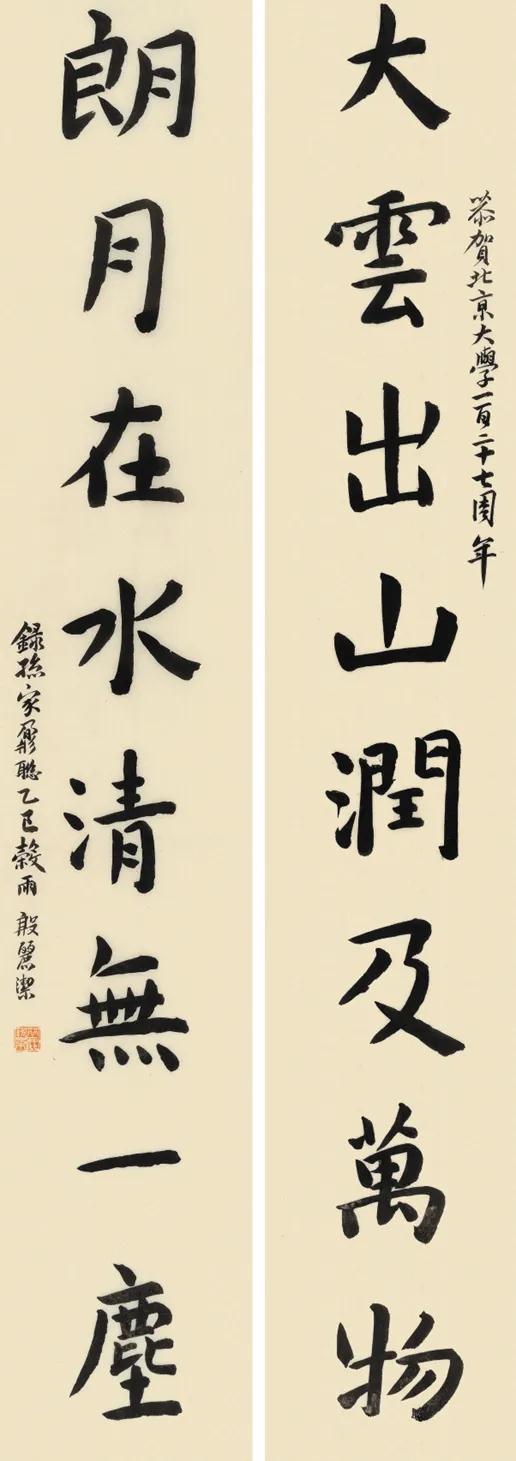 恭賀北京大學一百二十七周年
大雲出山潤及萬物
朗月在水清無一塵
錄孫家鼐聯乙巳穀雨 殷麗潔